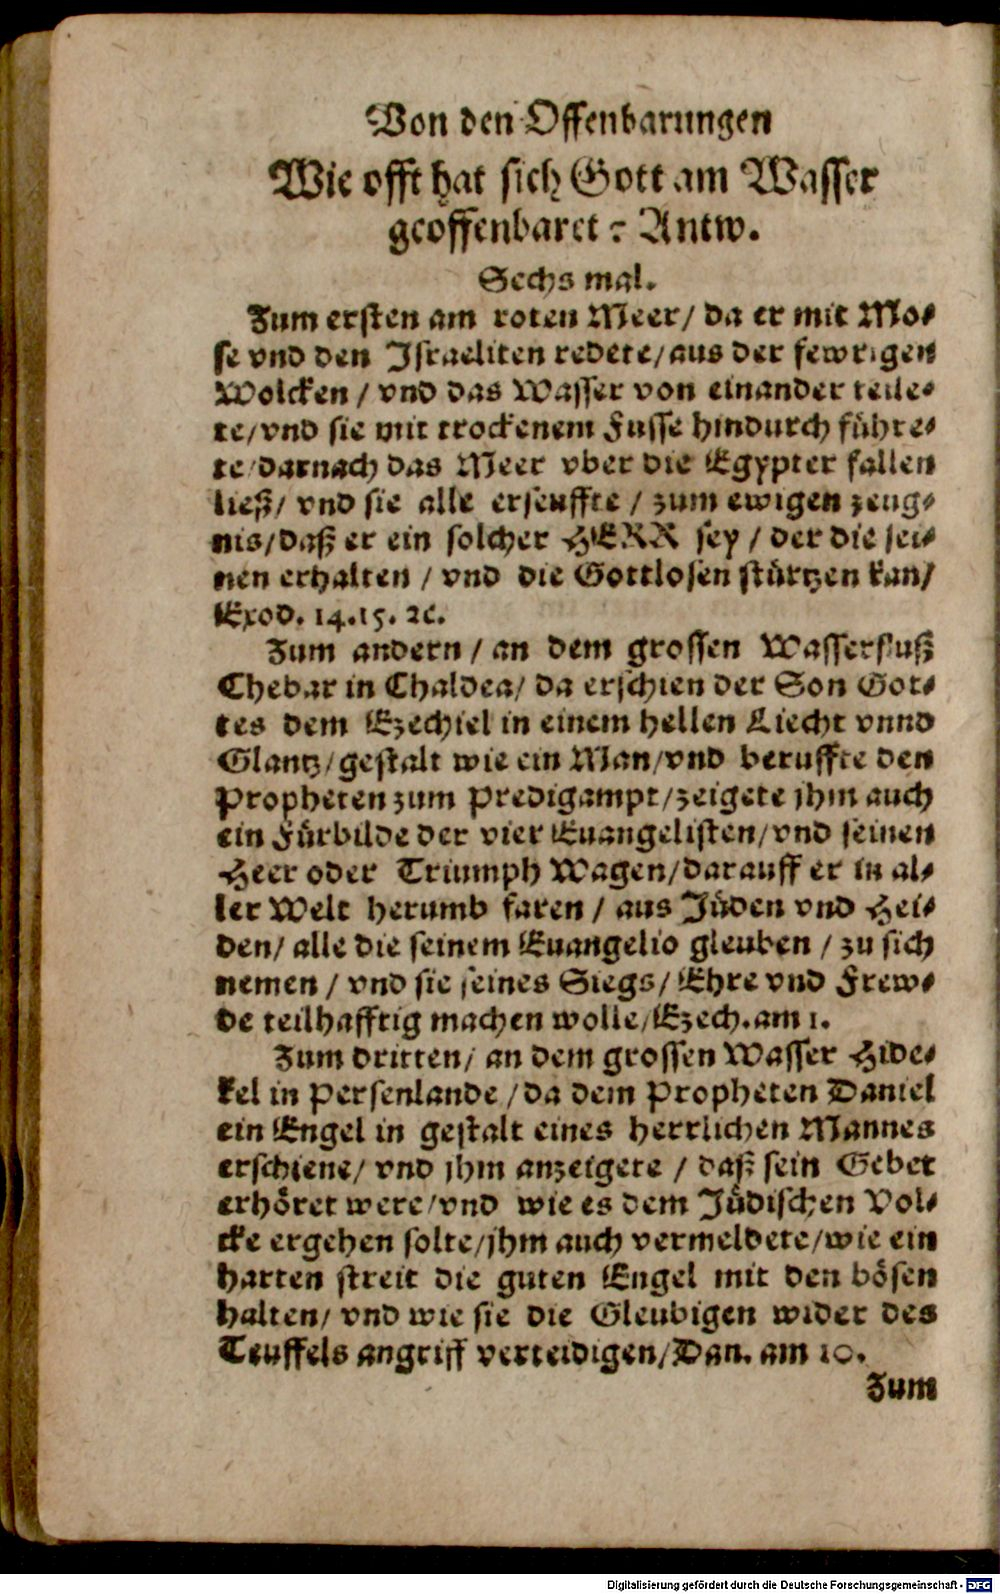 Von den Offenbarungen
Wie offt hat sich Gott am Wasser
geoffenbaret? Antw.
Sechs mal.
Zum ersten am roten Meer/ da er mit Mo-
se vnd den Israeliten redete/ aus der fewrigen
Wolcken / vnd das Wasser von einander teile-
te/ vnd sie mit trockenem Fusse hindurch führe-
te/ darnach das Meer vber die Egypter fallen
ließ/ vnd sie alle erseuffte / zum ewigen zeug-
nis/ daß er ein solcher HERR sey / der die sei-
nen erhalten / vnd die Gottlosen stürtzen kan/
Exod. 14.15. ꝛc.
Zum andern / an dem grossen Wasserfluß
Chebar in Chaldea/ da erschien der Son Got-
tes dem Ezechiel in einem hellen Liecht vnnd
Glantz/ gestalt wie ein Man/ vnd beruffte den
Propheten zum Predigampt/ zeigete jhm auch
ein Fürbilde der vier Euangelisten/ vnd seinen
Heer oder Triumph Wagen/ darauff er in al-
ler Welt herumb faren / aus Jüden vnd Hei-
den/ alle die seinem Euangelio gleuben / zu sich
nemen / vnd sie seines Siegs/ Ehre vnd Frew-
de teilhafftig machen wolle/ Ezech. am 1.
Zum dritten/ an dem grossen Wasser Hide-
kel in Persenlande / da dem Propheten Daniel
ein Engel in gestalt eines herrlichen Mannes
erschiene/ vnd jhm anzeigete / daß sein Gebet
erhöret were/ vnd wie es dem Jüdischen Vol-
cke ergehen solte/ jhm auch vermeldete/ wie ein
harten streit die guten Engel mit den bösen
halten/ vnd wie sie die Gleubigen wider des
Teuffels angriff verteidigen/ Dan. am 10.
Zum
Digitalisierung gefördert durch die Deutsche Forschungsgemeinschaft - DFG